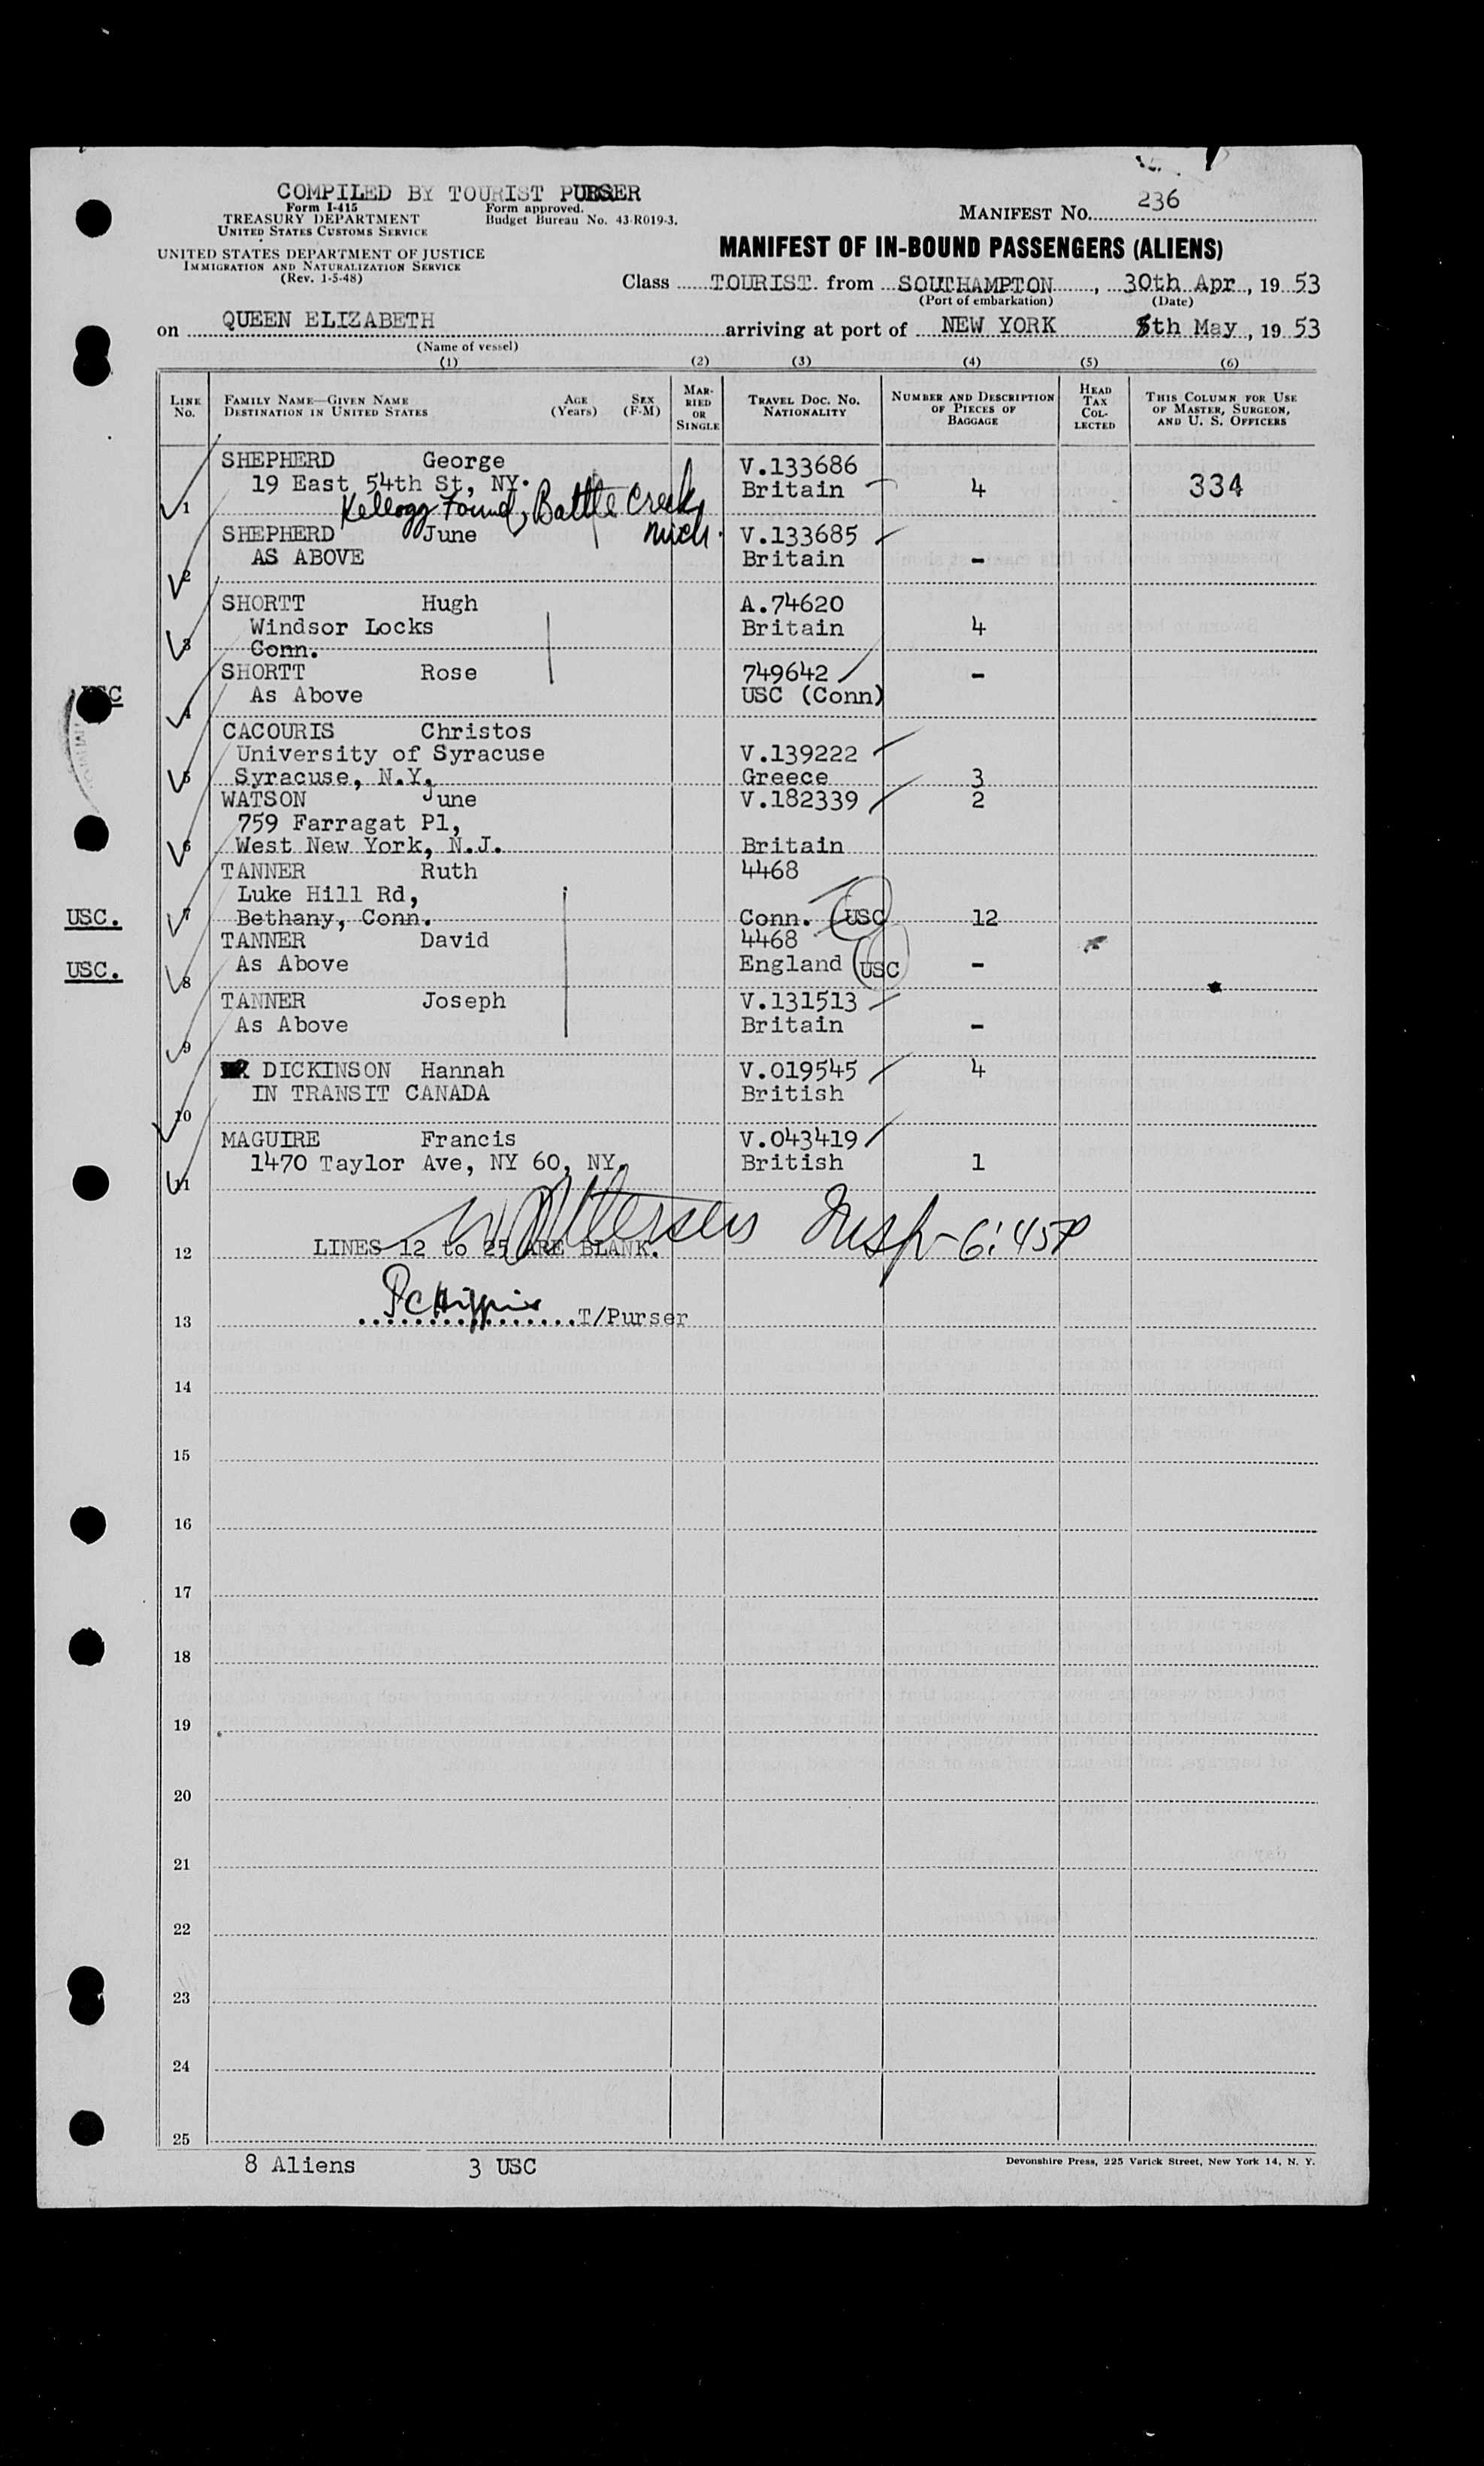 COMPILED BY TOURIST PURSER
Form I-415
TREASURY DEPARTMENT
UNITED STATES CUSTOMS SERVICE
Form approved.
Budget Bureau No. 43-R019-3.
UNITED STATES DEPARTMENT OF JUSTICE
IMMIGRATION AND NATURALIZATION SERVICE
(Rev. 1-5-48)
MANIFEST NO. 236
MANIFEST OF IN-BOUND PASSENGERS (ALIENS)
Class TOURIST from SOUTHAMPTON, 30th Apr, 19 53
(Port of embarkation) (Date)
on QUEEN ELIZABETH arriving at port of NEW YORK 5th May, 19 53
(Name of vessel)
(1) (2) (3) (4) (5) (6)
LINE NO. FAMILY NAME—GIVEN NAME DESTINATION IN UNITED STATES AGE (Years) SEX (F-M) MARRIED OR SINGLE TRAVEL DOC. NO. NATIONALITY NUMBER AND DESCRIPTION OF PIECES OF BAGGAGE HEAD TAX COLLECTED THIS COLUMN FOR USE OF MASTER, SURGEON, AND U. S. OFFICERS
SHEPHERD George V.133686
19 East 54th St, NY. Britain 4 334
1 Kellogg Found, Battle Creek
Mich.
SHEPHERD June V.133685
AS ABOVE Britain -
2
SHORTT Hugh A.74620
Windsor Locks Britain 4
3 Conn.
SHORTT Rose 749642 -
USC As Above USC (Conn)
4
CACOURIS Christos
University of Syracuse V.139222
5 Syracuse, N.Y. Greece 3
WATSON June V.182339 2
759 Farragat Pl,
6 West New York, N.J. Britain
TANNER Ruth 4468
Luke Hill Rd,
USC. 7 Bethany, Conn. Conn. (USC 12
TANNER David 4468
USC. 8 As Above England (USC -
TANNER Joseph V.131513
As Above Britain -
9
DICKINSON Hannah V.019545 4
IN TRANSIT CANADA British
10
MAGUIRE Francis V.043419
1470 Taylor Ave, NY 60, NY. British 1
11
Insp- 6:45P
12 LINES 12 to 25 ARE BLANK.
13 ................T/Purser
14
15
16
17
18
19
20
21
22
23
24
25
8 Aliens 3 USC
Devonshire Press, 225 Varick Street, New York 14, N. Y.